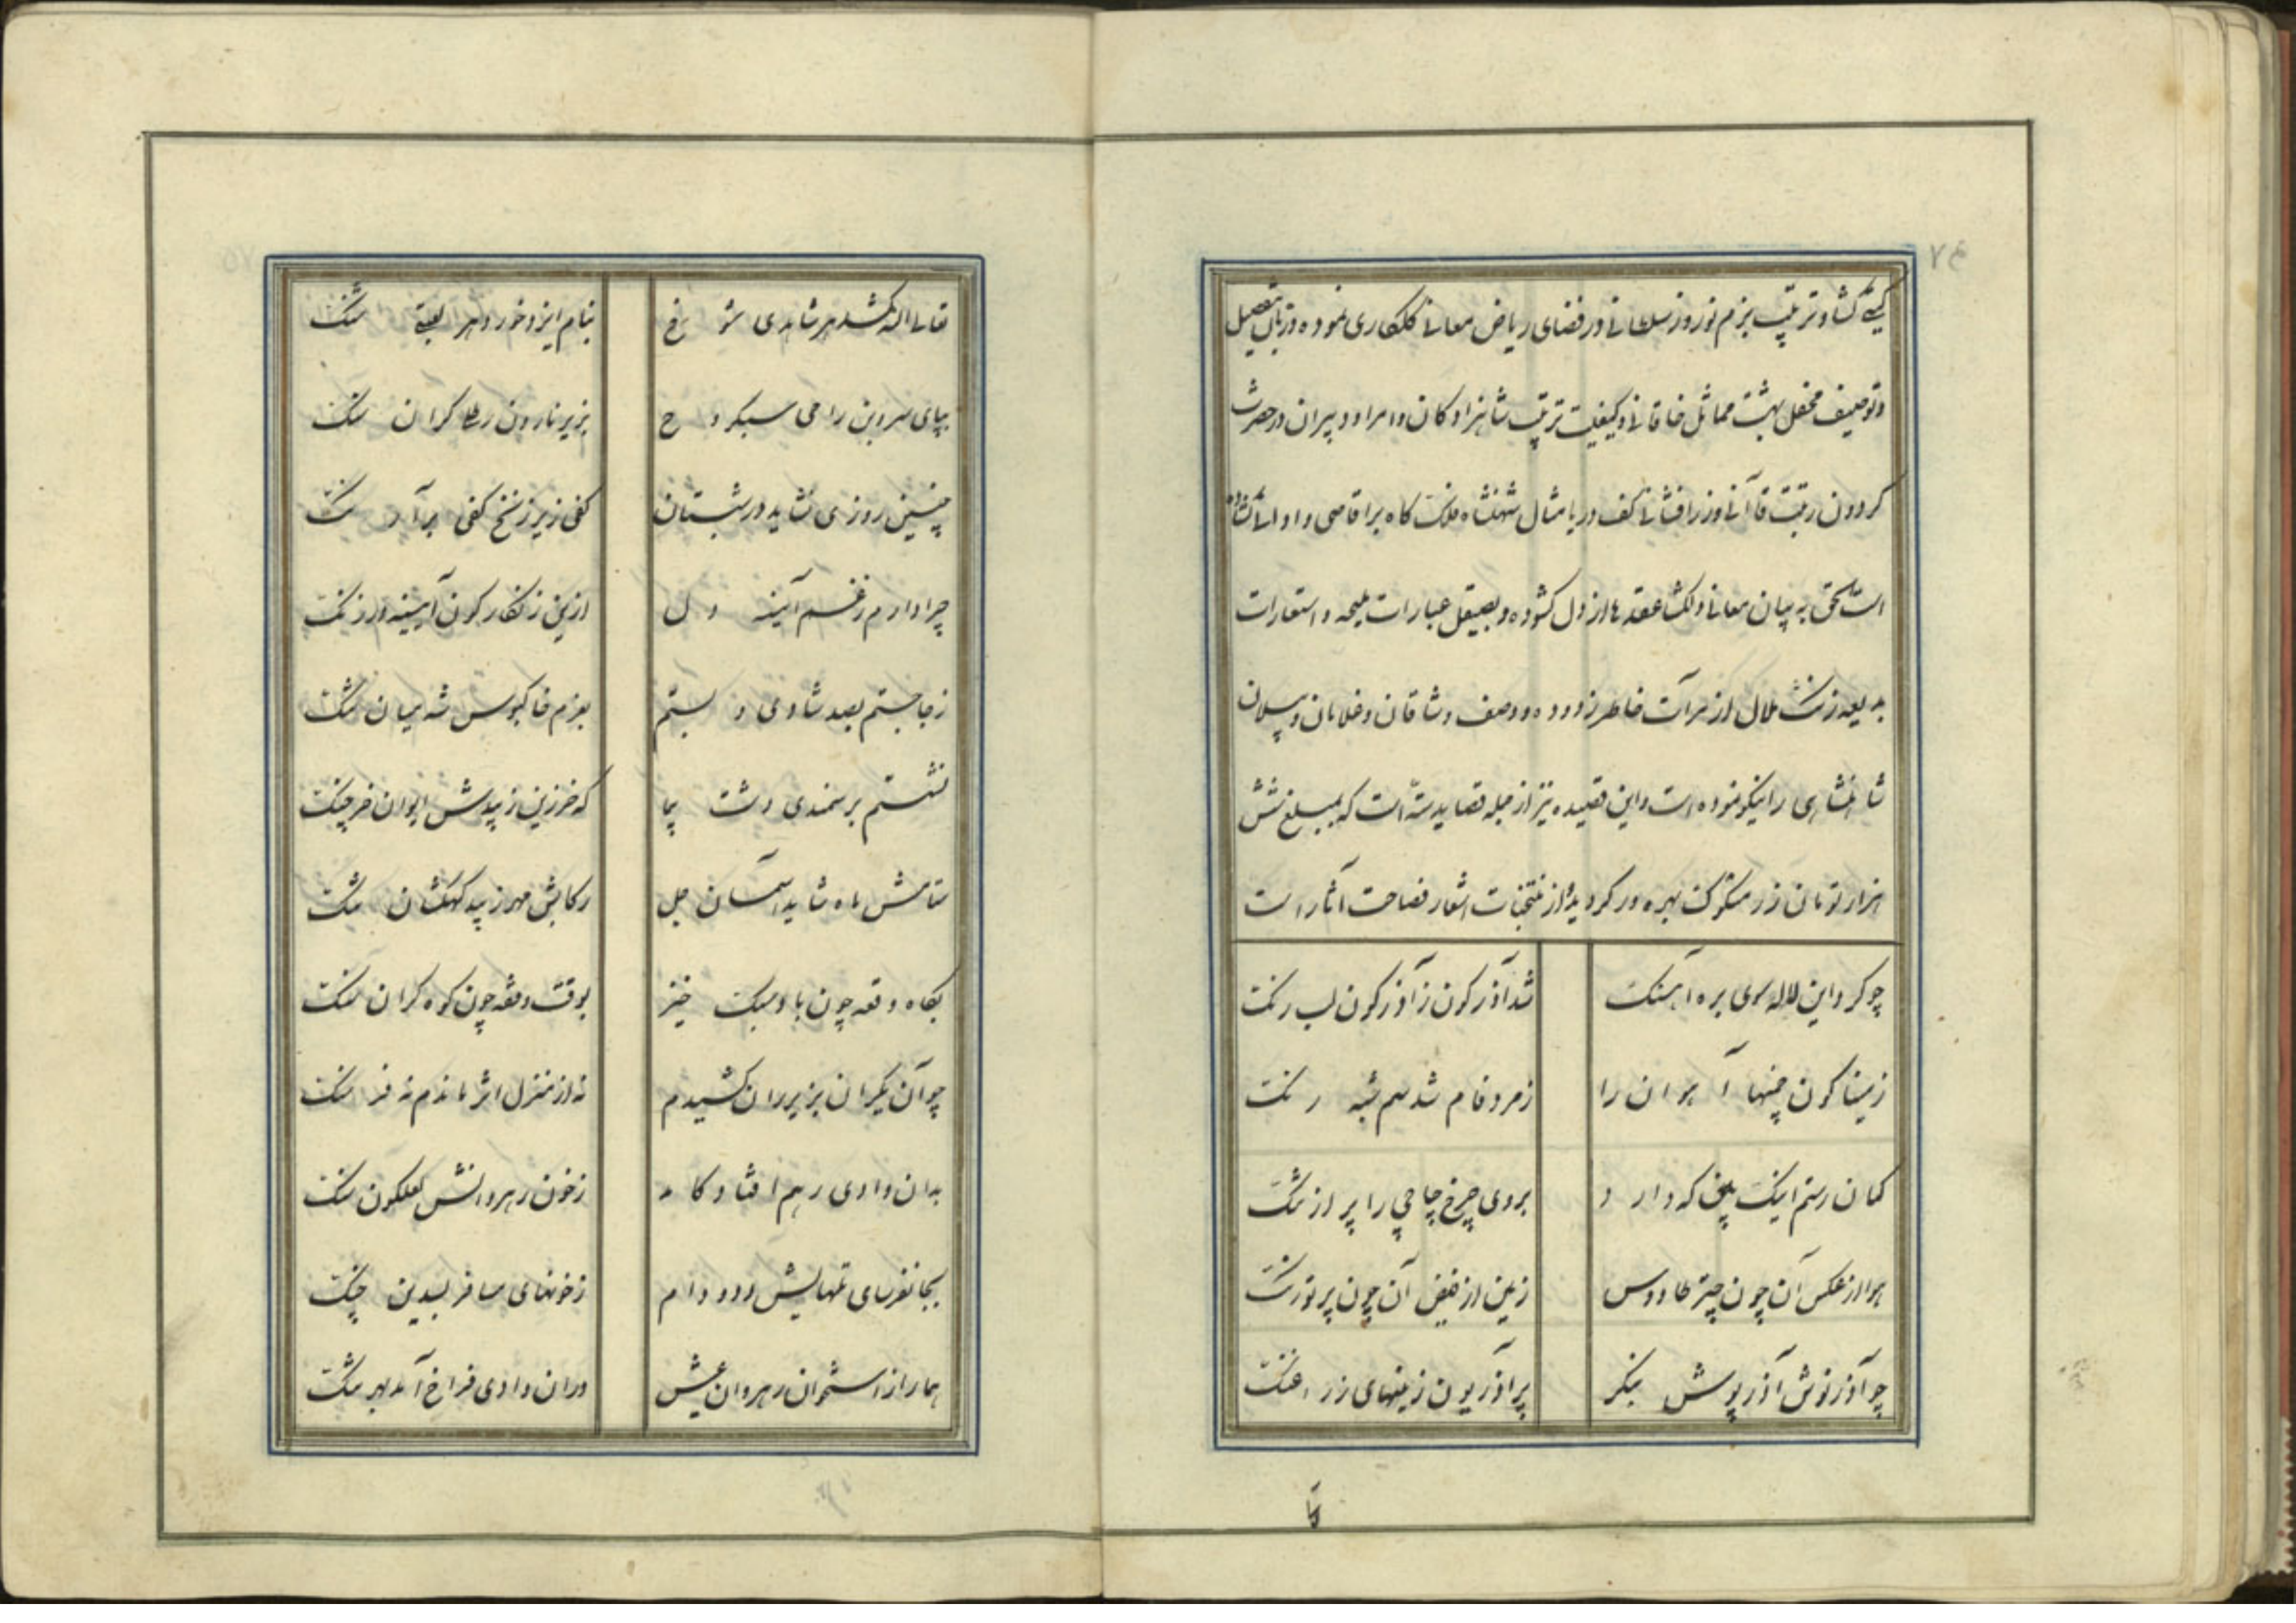 ۷۴
گیتی گشا و ترتیب بزم نوروز سلطانی در فضای ریاض معانی گلکاری نموده و در بیان تفصیل
و توصیف محفل بهشت مماثل خاقانی و کیفیت ترتیب شاهزادگان و امرا و دبیران در حضرت
گردون رتبت قاآنی و زرافشانی کف دریا مثال شهنشاه ملک گاه بر اقاصی و ادانی
است الحق به بیان معانی دلگشا عقده ها از دل گشوده و بصیقل عبارات ملیحه و استعارات
بدیعه زنگ ملال از مرآت خاطر زدوده و وصف وشاقان و غلامان و
شاهنشاهی را نیکو نموده است و این قصیده نیز از جمله قصاید سته است که بمبلغ شش
هزار تومان زر مسکوک بهره ور گردیده از منتخبات اشعار فصاحت آثار است
چو کرد این لاله سوی بره آهنگ شد آذرگون ز آذرگون لب رنگ
ز مینا گون چمنها آهوان را زمرد فام شد سم شبه رنگ
کمان رستم اینک بین که دارد بروی چرخ چاچی را پر از شنگ
هوا از عکس آن چون چتر طاووس زمین از فیض آن چون پر تورنگ
چو آذرنوش آذرپوش بنگر پر آذریون زمینهای زراغنگ
تعالی الله کشد هر شاهدی شوخ بنام ایزد خورد هر لعبتی شنگ
بپای سروبن راحی سبکروح بزیر نارون رطلی گران سنگ
چنین روزی نشاید در شبستان کفی زیر زنخ کفی بر آرنگ
چرا دارم ز غم آئینه دل ازین زنگارگون آیینه در زنگ
ز جا جستم بصد شادی و بستم بعزم خاکبوس شه میان تنگ
نشستم بر سمندی دشت پیما که خرزین زیبدش ایوان خرچنگ
ستامش ماه شاید آسمان جل رکابش مهر زیبد کهکشان تنگ
بگاه وقعه چون باد سبک خیز بوقت وقفه چون کوه گران سنگ
چو آن یکران بزیر ران کشیدم نه از منزل اثر ماندم نه فرسنگ
بدان وادی رهم افتاد کآمد ز خون رهروانش لعلگون سنگ
بجانفرسای تلهایش دد و دام ز خونهای مسافر بسدین چنگ
همار از استخوان رهروان عیش در آن وادی فراخ آمد بهر تنگ
تعا